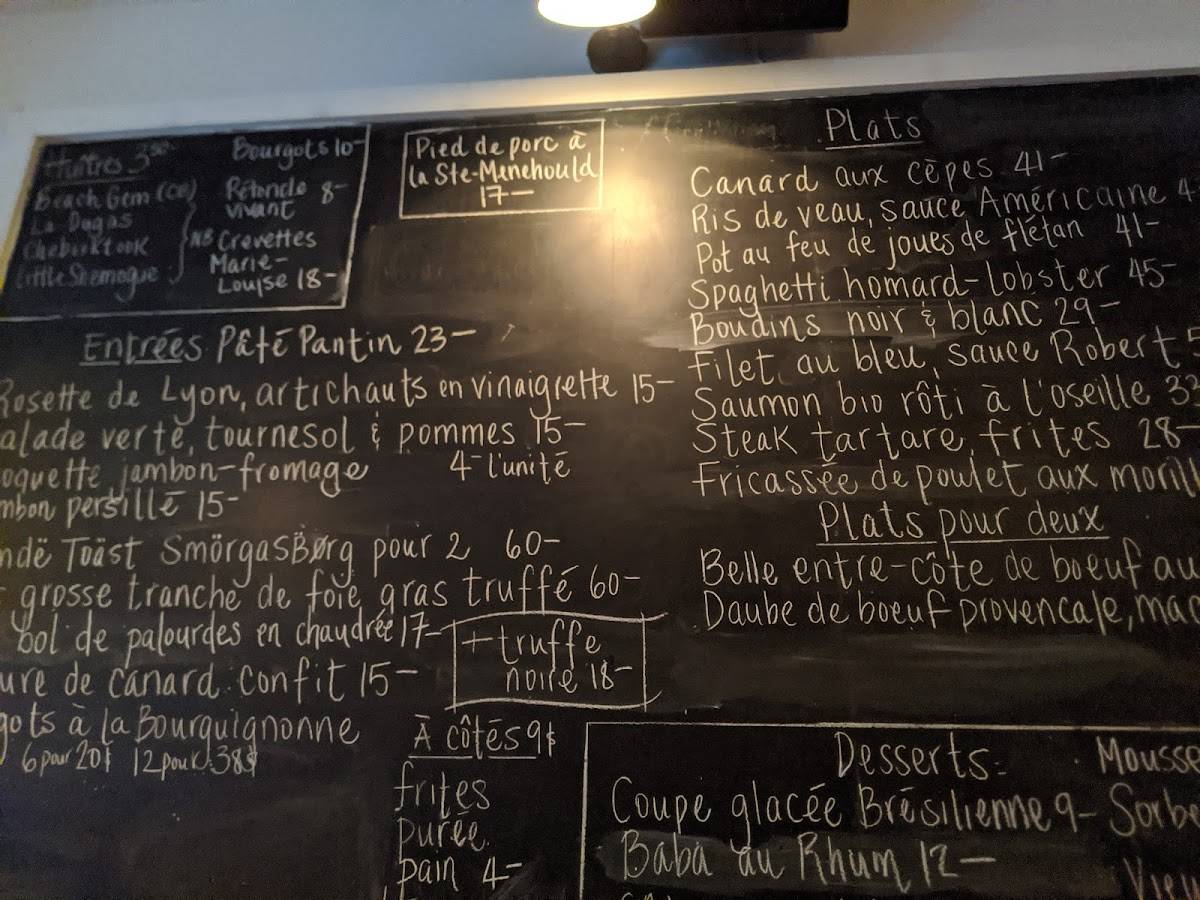 Huîtres 3
Beach Gem (CB)
La Dugas
Chebooktook
Little Shemogue
NB
Bourgots 10-
Pétoncle 8-
vivant
Crevettes
Marie-
Louise 18-
Pied de porc à
la Ste-Menehould
17-
Entrées Pâté Pantin 23-
Rosette de Lyon, artichauts en vinaigrette 15-
alade verte, tournesol & pommes 15-
oquette jambon-fromage 4- l'unité
mbon persillé 15-
ndë Toäst SmörgasBørg pour 2 60-
grosse tranche de foie gras truffé 60-
bol de palourdes en chaudrée 17-
ure de canard confit 15-
gots à la Bourguignonne
6 pour 20$ 12 pour 38$
+ truffe
noire 18-
À côtés 9$
frites
purée
pain 4-
Plats
Canard aux cèpes 41-
Ris de veau, sauce Américaine 4
Pot au feu de joues de flétan 41-
Spaghetti homard-lobster 45-
Boudins noir & blanc 29-
Filet au bleu, sauce Robert 5
Saumon bio rôti à l'oseille 33
Steak tartare, frites 28-
Fricassée de poulet aux morill
Plats pour deux
Belle entre-côte de boeuf au
Daube de boeuf provencale, mac
Desserts
Coupe glacée Brésilienne 9-
Baba au Rhum 12-
Mousse
Sorbe
Vieu